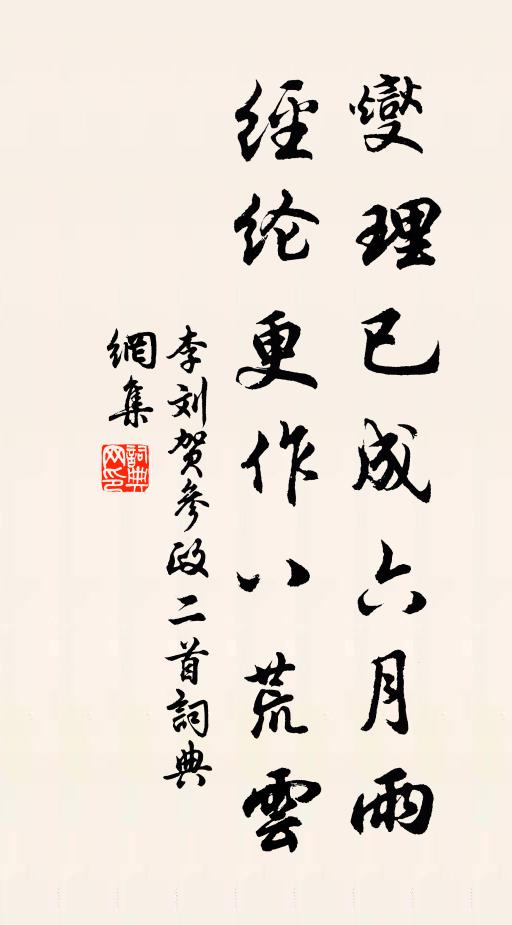 燮理已成六月雨
經纶更作八荒雲
李刘贺參政二首詞典
網集
詞典網印